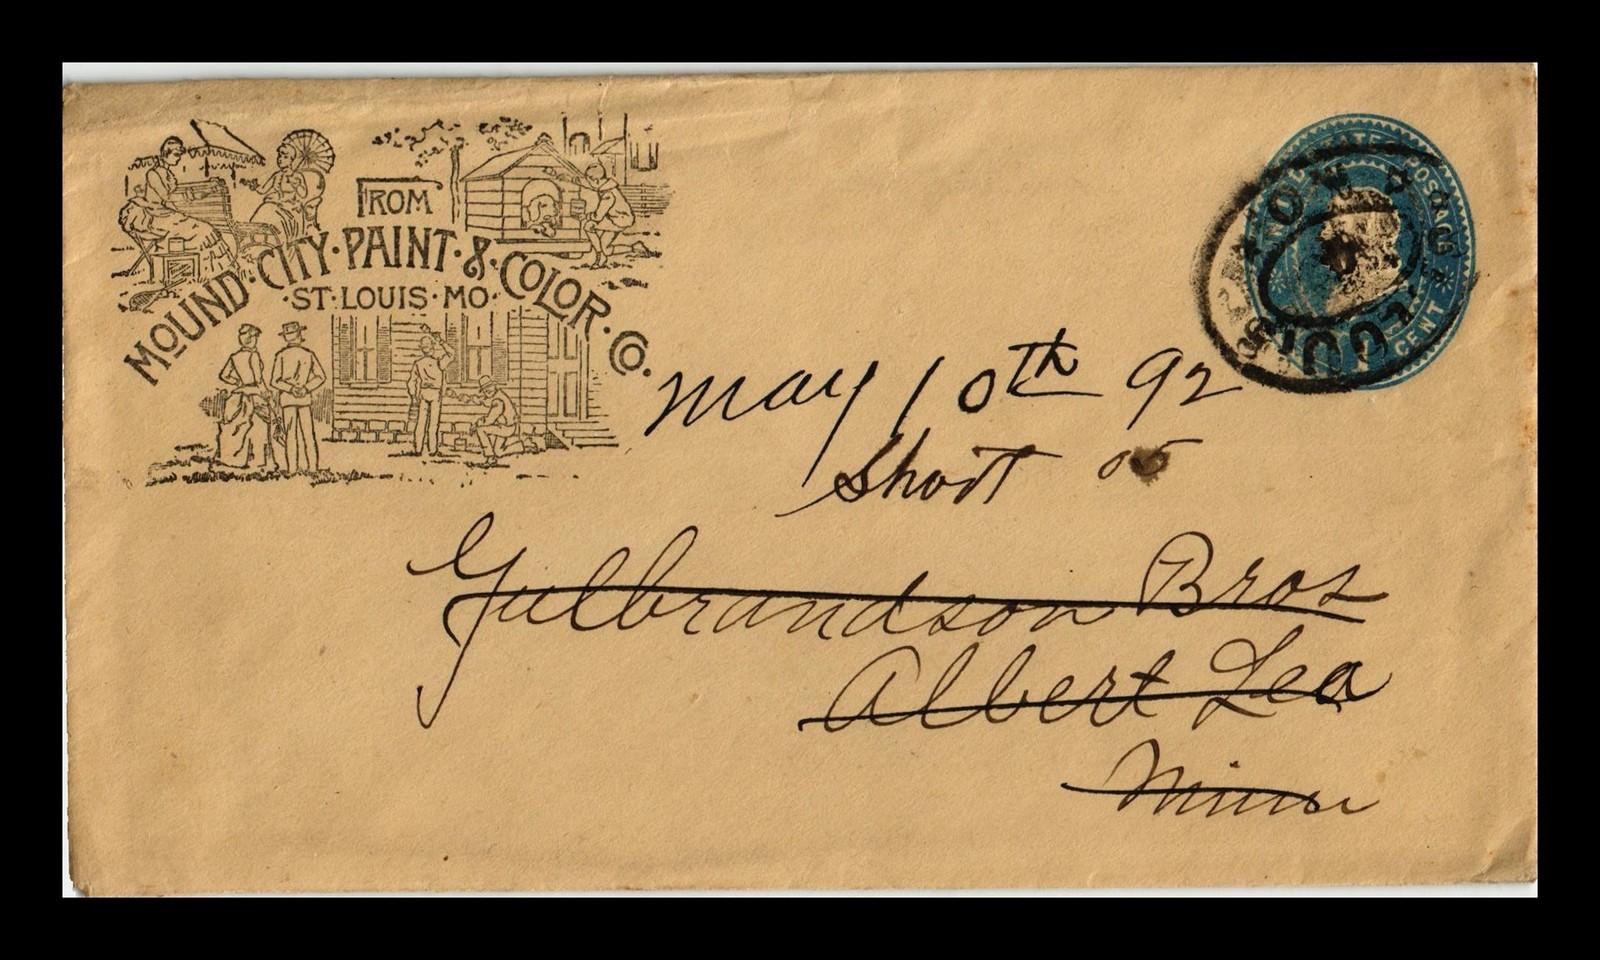 FROM
MOUND·CITY·PAINT·&·COLOR·CO.
·ST·LOUIS·MO·
UNITED STATES POSTAGE
ONE CENT
ST. LOUIS MO
May 10th 92
Short 05
Gulbrandson Bros
Albert Lea
Minn